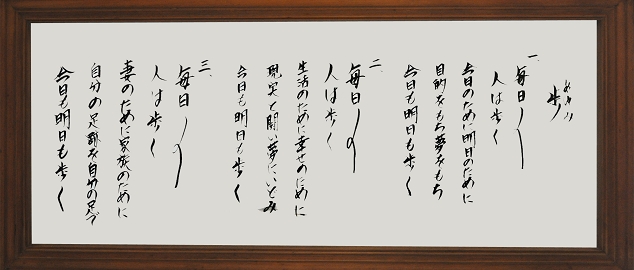 あゆみ
歩
一、毎日〳〵
人は歩く
今日のために明日のために
目的をもち夢をもち
今日も明日も歩く
二、毎日〳〵
人は歩く
生活のために幸せのために
現実と闘い夢にいどみ
今日も明日も歩く
三、毎日〳〵
人は歩く
妻のために家族のために
自分の足跡を自分の足で
今日も明日も歩く